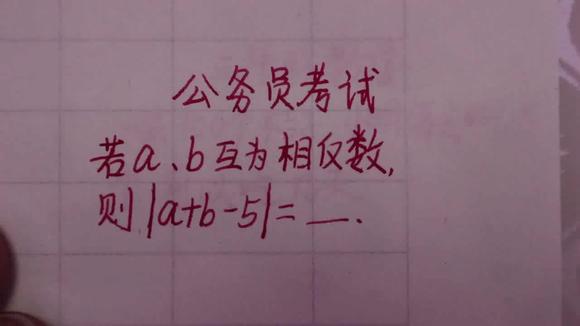 公务员考试
若a、b互为相仅数,
则|a+b-5|=__.